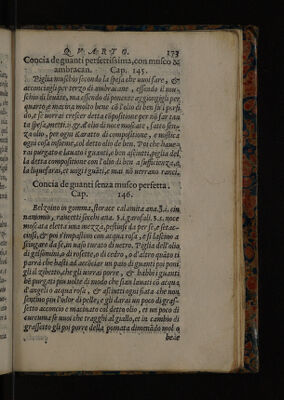 QVARTO. 173
Concia de guanti perfettissima, con musco &
ambracan. Cap. 145.
Piglia muschio secondo la spesa che vuoi fare, &
acconciagli per terzo di ambracane, essendo il mu-
schio di leuãte, ma essendo di ponente aggiongigli per
quarto & macina molto bene
do, & se vorrai crescer detta cõpositione per nõ far tan
ta spesa, metti. ij. g. d'olio di noce moscate, fatto sen-
za olio, per ogni caratto di compositione, & mistica
ogni cosa insieme, col detto olio de ben. Poi che haue-
rai purgato e lauato i guanti, e ben asciutti, piglia del
la detta compositione con l'olio di ben a sufficienza, &
la liquefarai, et vngi i guãti, e mai nõ verranno ranci.
Concia de guanti senza musco perfetta.
Cap. 146.
Belzuino in gomma, storace calamita ana. ℥.i. cin
namomo, rancetti secchi ana. ℥.i. garofali. ℥.i. noce
moscata eletta una mezza, pestinsi da per se, e setac-
cinsi, & poi s'impastino con acqua rosa, e si lascino a
sciugare da se, in vaso turato di vetro. Piglia dell'olio
di gigismini, o di rosette, o di cedro, o d'altro quãto ti
parrà che basti ad acconciar un paio di guanti poi poni
gli il zibetto, che gli vorrai porre, & habbi i guanti
bẽ purgati piu volte di modo che sian lauati cõ acqua
d'angeli o acqua rosa, & asciutti ogni fiata che non
sentino piu l'odor di pelle, e gli darai un poco di gras-
setto acconcio e macinato col detto olio, et un poco di
curcuma se vuoi che tragghi al giallo, et in cambio di
grassetto gli poi porre della pomata
bene